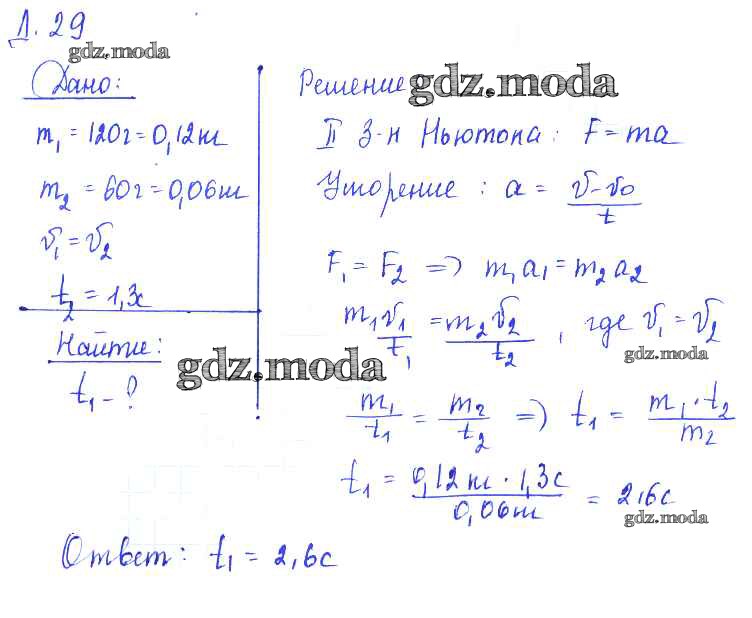 Д. 29
gdz.moda
Дано:
m₁ = 120г = 0,12кг
m₂ = 60г = 0,06кг
v₁ = v₂
t₂ = 1,3с
Найти:
t₁ - ?
gdz.moda
Решение
gdz.moda
II З-н Ньютона: F = ma
Ускорение: a = (v - v₀)/t
F₁ = F₂ => m₁a₁ = m₂a₂
m₁v₁/t₁ = m₂v₂/t₂, где v₁ = v₂
gdz.moda
m₁/t₁ = m₂/t₂ => t₁ = m₁·t₂/m₂
t₁ = 0,12кг · 1,3с/0,06кг = 2,6с
gdz.moda
Ответ: t₁ = 2,6с